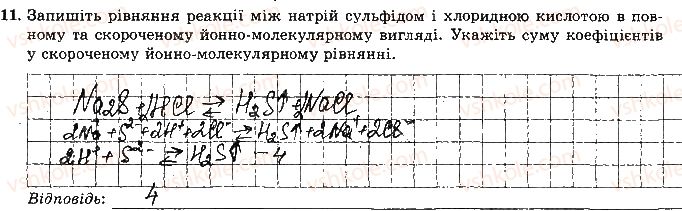 11. Запишіть рівняння реакції між натрій сульфідом і хлоридною кислотою в пов-
ному та скороченому йонно-молекулярному вигляді. Укажіть суму коефіцієнтів
у скороченому йонно-молекулярному рівнянні.
Na2S + 2HCl ⇄ H2S↑ + 2NaCl
2Na⁺ + S²⁻ + 2H⁺ + 2Cl⁻ ⇄ H2S↑ + 2Na⁺ + 2Cl⁻
2H⁺ + S²⁻ ⇄ H2S↑ – 4
Відповідь: 4